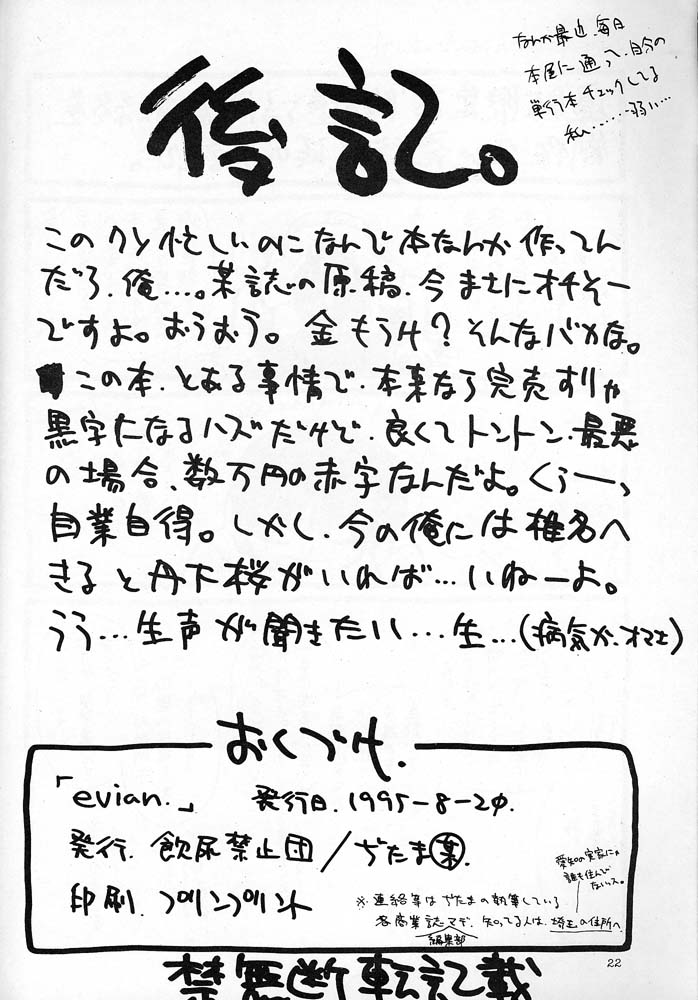 後記。
なんか最近、毎日
本屋に通って、自分の
単行本チェックしてる
私……弱い…
このクソ忙しいのになんで本なんか作ってん
だろ、俺…。某誌の原稿、今まさにオチそー
ですよ。おうおう。金もうけ?そんなバカな。
この本、とある事情で、本来なら完売すりゃ
黒字になるハズだけど、良くてトントン、最悪
の場合、数万円の赤字なんだよ。くぅーっ
自業自得。しかし、今の俺には椎名へ
きると丹下桜がいれば…いねーよ。
うう…生声が聞きたい…生…(病気か、オマエ)
おくづけ.
「evian.」 発行日. 1995-8-20.
発行. 飲尿禁止団/ぢたま某.
印刷. プリンプリント
※連絡等はぢたまの執筆している
各商業誌編集部マデ、知ってる人は、埼玉の住所へ
愛知の実家にゃ
誰も住んで
ないっス。
禁無断転記載
22